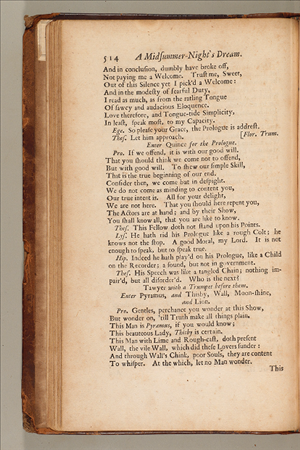 514 A Midsummer-Night's Dream.
And in conclusion, dumbly have broke off,
Not paying me a Welcome. Trust me, Sweet,
Out of this Silence yet I pick'd a Welcome:
And in the modesty of fearful Duty,
I read as much, as from the ratling Tongue
Of sawcy and audacious Eloquence.
Love therefore, and Tongue-tide Simplicity,
In least, speak most, to my Capacity.
Ege. So please your Grace, the Prologue is addrest.
Thes. Let him approach. [Flor. Trum.
Enter Quince for the Prologue.
Pro. If we offend, it is with our good will,
That you should think we come not to offend,
But with good will. To shew our simple Skill,
That is the true beginning of our end.
Consider then, we come but in despight.
We do not come as minding to content you,
Our true intent is. All for your delight,
We are not here. That you should here repent you,
The Actors are at hand; and by their Show,
You shall know all, that you are like to know.
Thes. This Fellow doth not stand upon his Points.
Lys. He hath rid his Prologue like a rough Colt; he
knows not the stop. A good Moral, my Lord. It is not
enough to speak, but to speak true.
Hip. Indeed he hath play'd on his Prologue, like a Child
on the Recorder; a sound, but not in government.
Thes. His Speech was like a tangled Chain; nothing im-
pair'd, but all disorder'd. Who is the next?
Tawyer with a Trumpet before them.
Enter Pyramus, and Thisby, Wall, Moon-shine,
and Lion.
Pro. Gentles, perchance you wonder at this Show,
But wonder on, 'till Truth make all things plain.
This Man is Pyramus, if you would know;
This beauteous Lady, Thisby is certain.
This Man with Lime and Rough-cast, doth present
Wall, the vile Wall, which did these Lovers sunder:
And through Wall's Chink, poor Souls, they are content
To whisper. At the which, let no Man wonder.
This